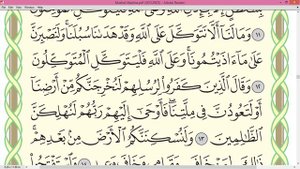 وَمَا لَنَآ أَلَّا نَتَوَكَّلَ عَلَى ٱللَّهِ وَقَدْ هَدَىٰنَا سُبُلَنَا ۚ وَلَنَصْبِرَنَّ
عَلَىٰ مَآ ءَاذَيْتُمُونَا ۚ وَعَلَى ٱللَّهِ فَلْيَتَوَكَّلِ ٱلْمُتَوَكِّلُونَ
١٢ وَقَالَ ٱلَّذِينَ كَفَرُوا۟ لِرُسُلِهِمْ لَنُخْرِجَنَّكُم مِّنْ أَرْضِنَآ
أَوْ لَتَعُودُنَّ فِى مِلَّتِنَا ۖ فَأَوْحَىٰٓ إِلَيْهِمْ رَبُّهُمْ لَنُهْلِكَنَّ
ٱلظَّٰلِمِينَ ١٣ وَلَنُسْكِنَنَّكُمُ ٱلْأَرْضَ مِنۢ بَعْدِهِمْ ۚ